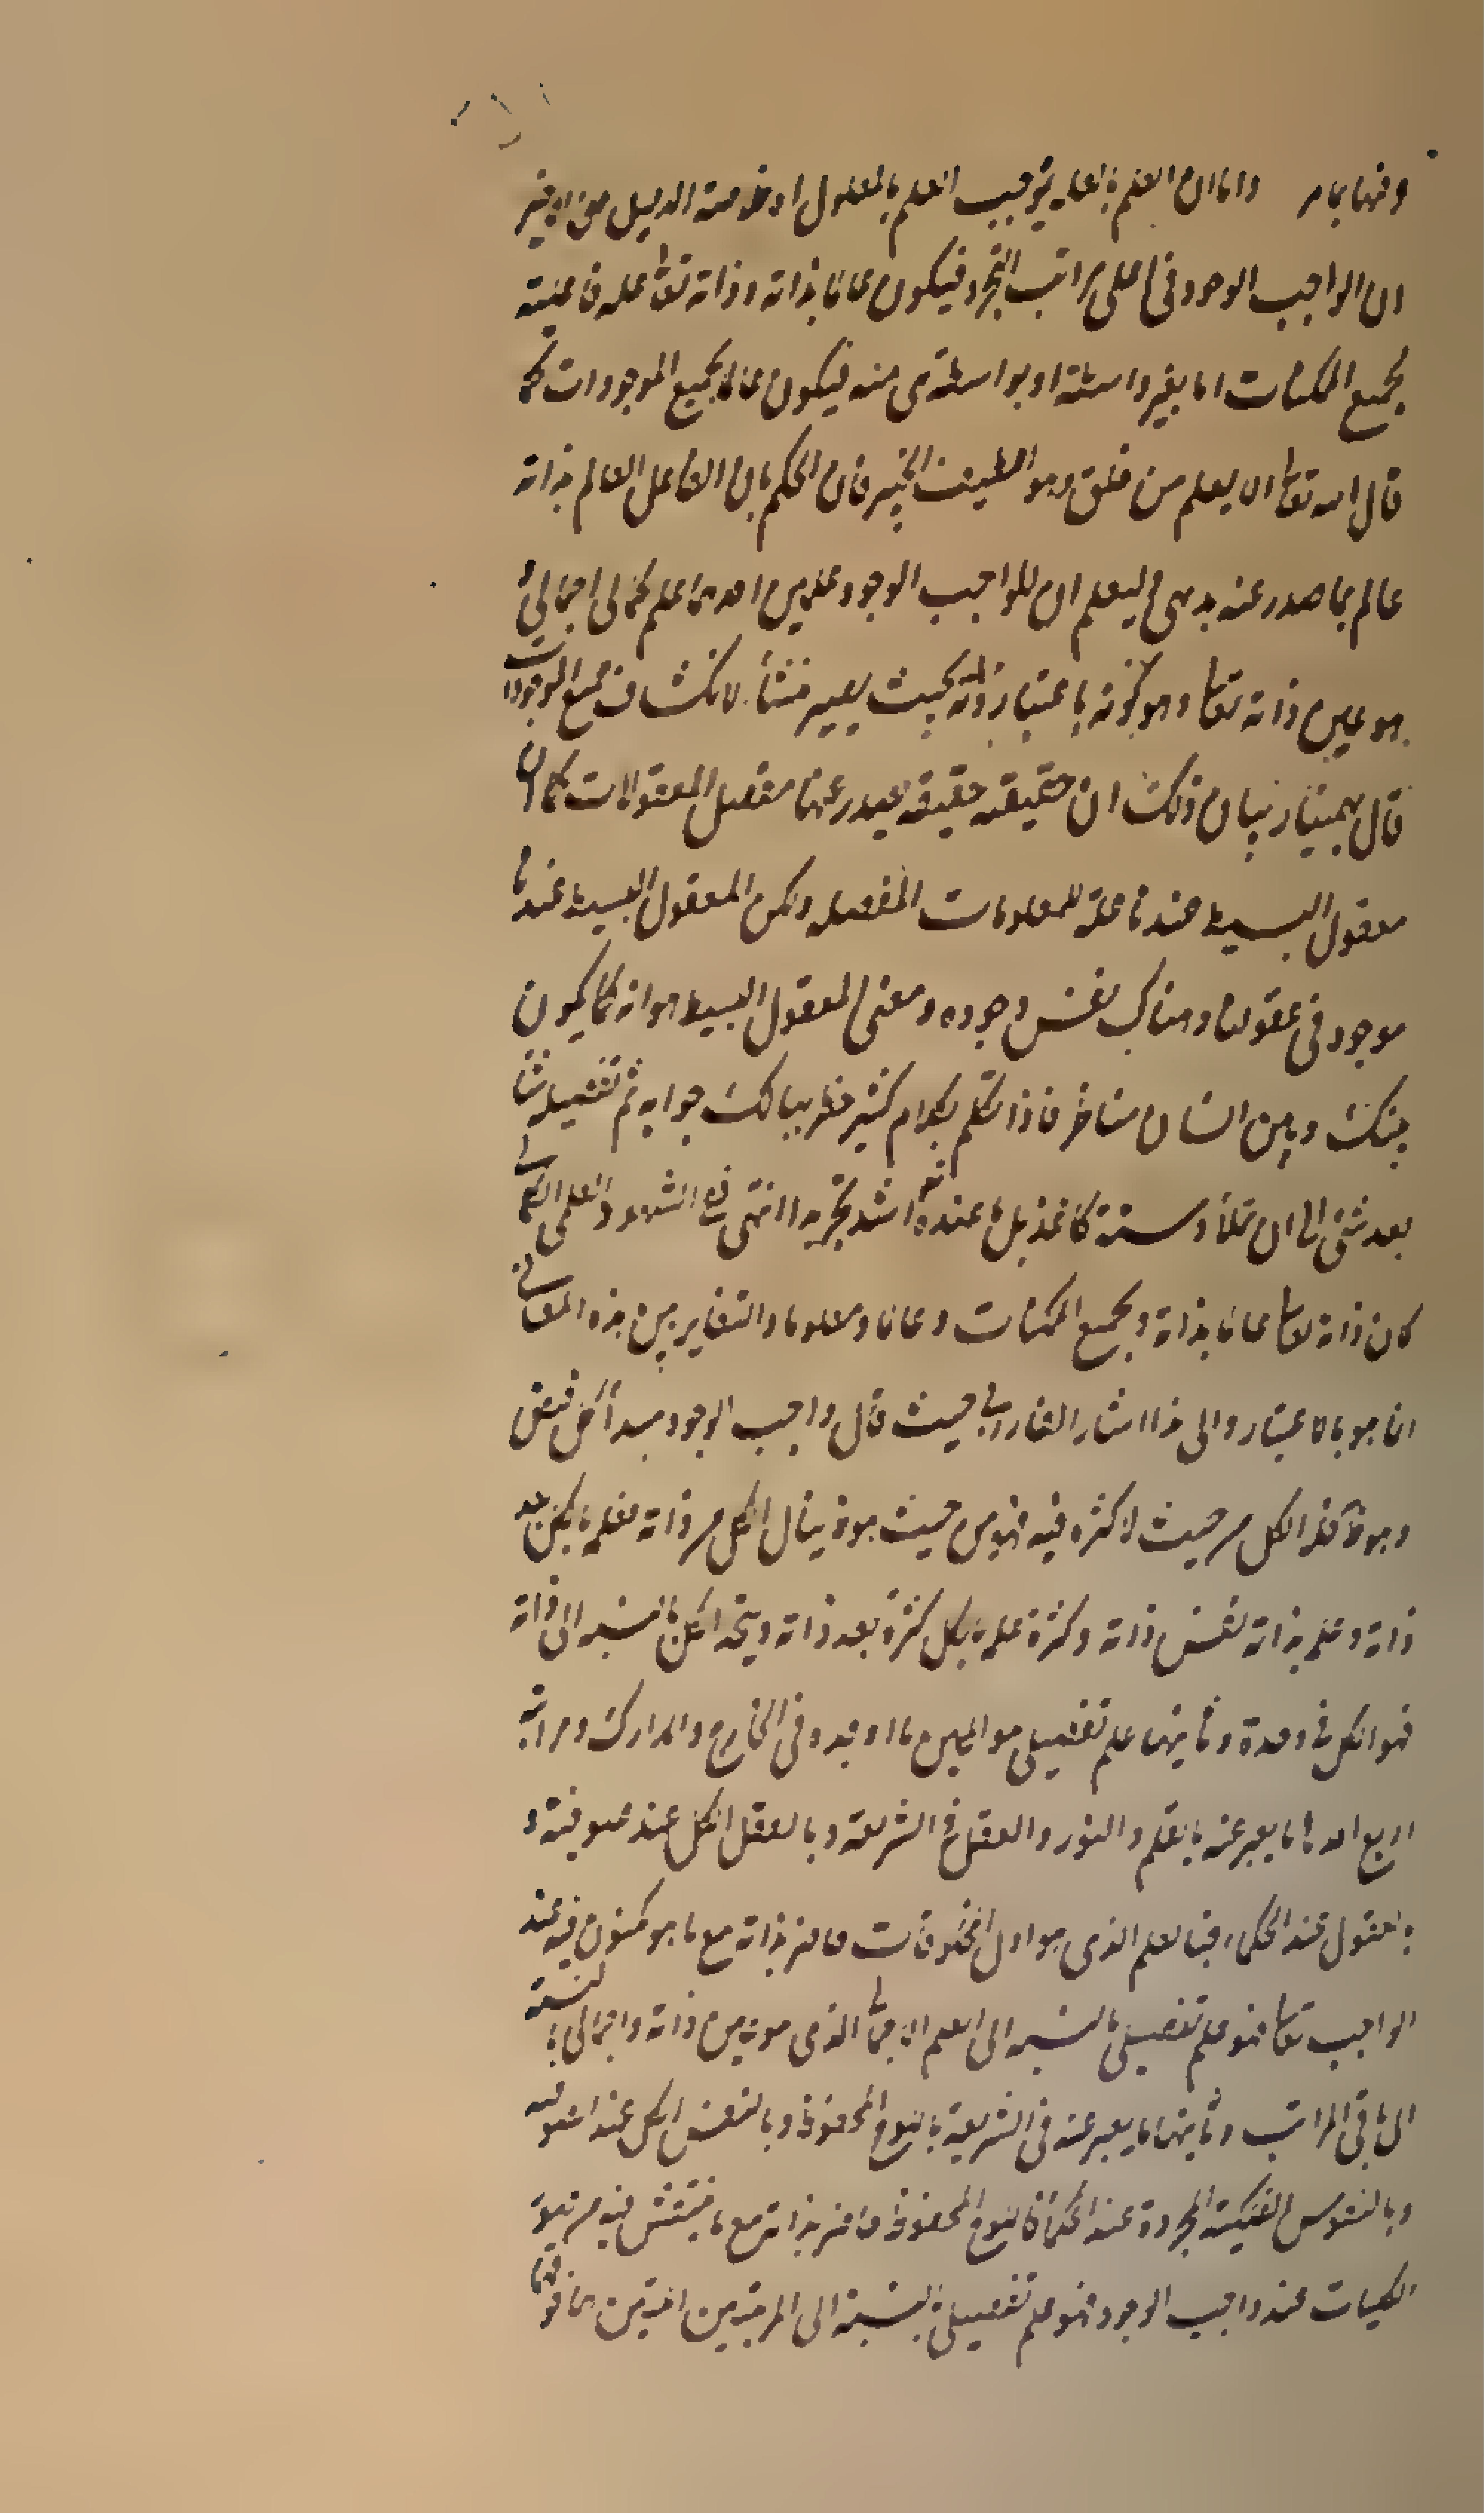 وفيها بما مر واما ان العلم بالعلة يوجب العلم بالمعلول او خدمته الدليل من
ان الواجب الوجود في اعلى مراتب التجرد فيكون عالما بذاته وذاته تعا علة فاعلية
لجميع الممكنات اما بغير واسطة او بواسطة هي منه فيكون عالما بجميع الموجودات كما
قال الله تعا الا يعلم من خلق وهو اللطيف الخبير فان الحكم بان الفاعل العالم بذاته
عالم بما صدر عنه بديهي ليعلم ان للواجب الوجود علمين احدهما علم كمالي اجمالي
هو عين ذاته تعا وهو كونه باعتبار ذاته بحيث يصير منشأ لانكشاف جميع الموجودات
قال بهمنيار بيان ذلك ان حقيقته حقيقة يصدر عنها مفصل المعقولات كما ان
معقول البسيط عندنا علة للمعلومات المفصلة ولكن المعقول البسيط عندنا
موجود في عقولنا وهناك نفس وجوده ومعنى المعقول البسيط هو انه كما يكون
بينك وبين انسان مناظر فاذا تكلم بكلام كثير خطر ببالك جوابه ثم تفصيله شيئا
بعد شئ الى ان تملأ دسته كاغذ بل ما عنده تعا اشد تجريدا انتهى في الشهود العلمي الكمالي
كان ذاته تعا عالما بذاته وبجميع الممكنات وعالما ومعلوما والتغاير بين هذه المعاني
انما هو بالاعتبار والى هذا اشار الفارابي حيث قال واجب الوجود مبدأ كل فيض
وهو ظاهر الكل من حيث لا كثرة فيه فهو من حيث هو ينال الكل من ذاته فعلمه بالكل بعد
ذاته وعلمه بذاته نفس ذاته وكثرة علمه بالكل كثرة بعد ذاته ويتحد الكل بالنسبة الى ذاته
فهو الكل في وحدة وثانيهما علم تفصيلي هو عين ما اوجده في الخارج والمدارك ومراتبه
اربع احدها ما يعبر عنه بالقلم والنور والعقل في الشريعة وبالعقل الكل عند الصوفية و
بالعقول عند الحكماء فبالعلم الذي هو اول المخلوقات حاضر بذاته مع ما هو مكنون فيه عند
الواجب تعا فهو علم تفصيلي بالنسبة الى العلم الاجمالي الذي هو عين ذاته واجمالي بالنسبة
الى باقي المراتب وثانيها ما يعبر عنه في الشريعة باللوح المحفوظ وبالنفس الكل عند الصوفية
وبالنفوس الفلكية المجردة عند الحكماء فاللوح المحفوظ حاضر بذاته مع ما ينتقش فيه من صور
الكليات عند واجب الوجود فهو علم تفصيلي بالنسبة الى المرتبتين اللتين هما فوقها